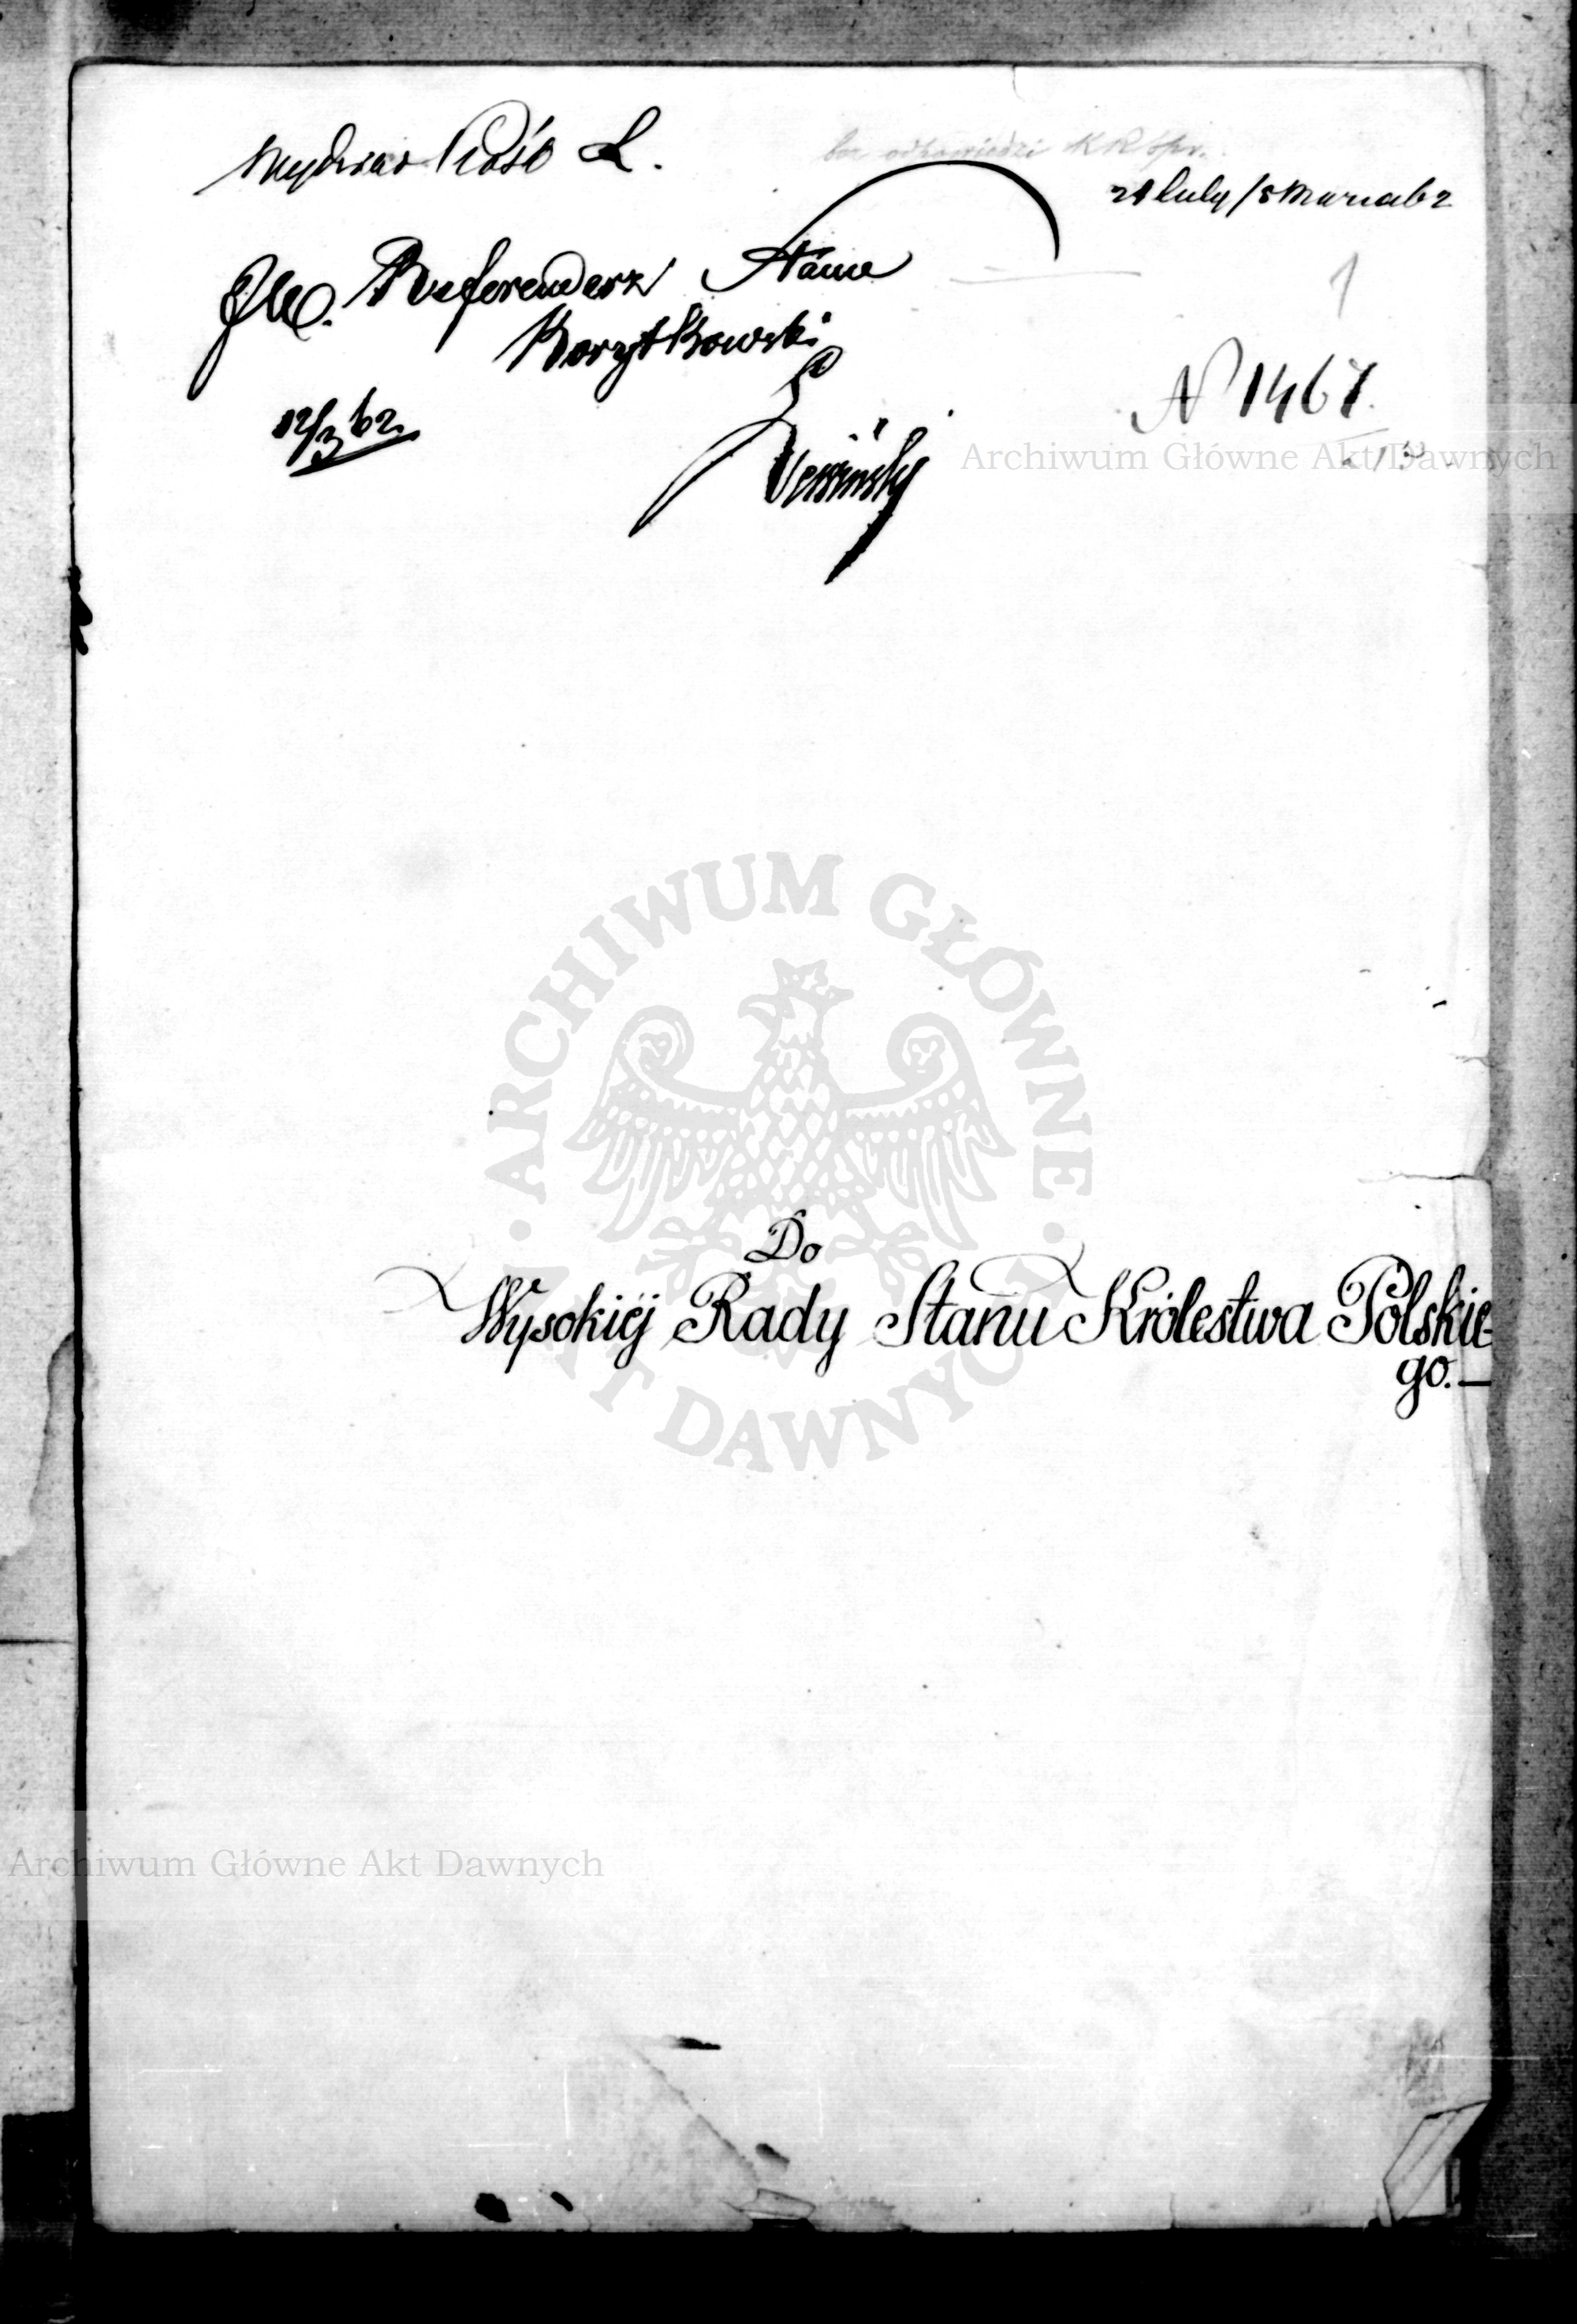 Wydział Próśb L.
bez odpowiedzi KR Spr.
24 Luty / 8 Marca 62
JW. Referendarz Stanu
Korytkowski
1
12/3 62.
N 1467.
Archiwum Główne Akt Dawnych
ARCHIWUM GŁÓWNE AKT DAWNYCH
Do
Wysokiéj Rady Stanu Królestwa Polskie-
go.—
Archiwum Główne Akt Dawnych